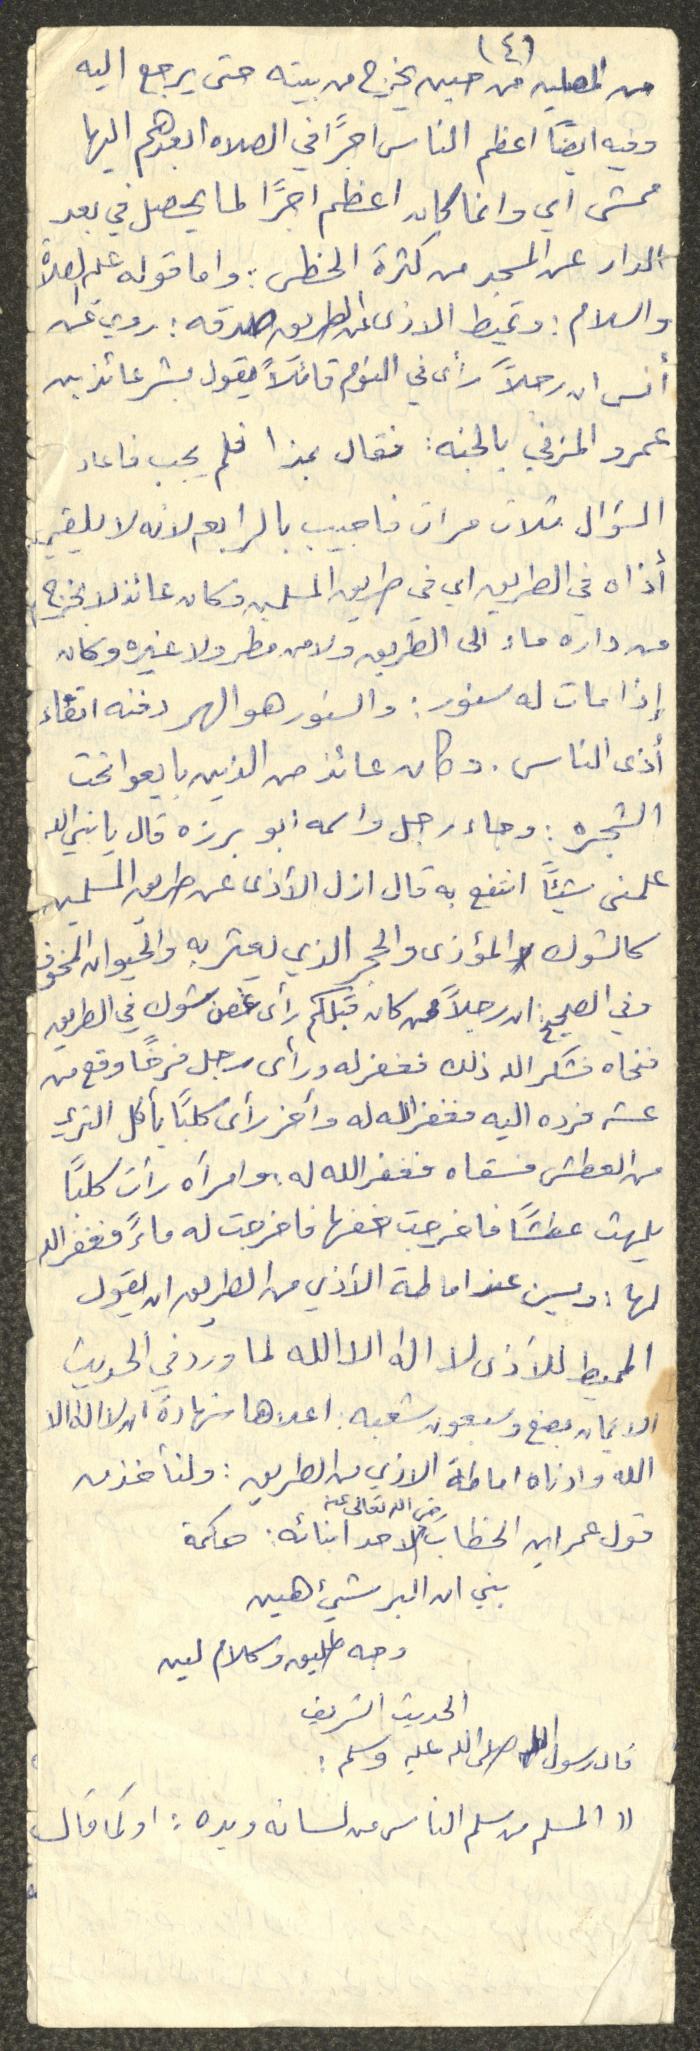 (٤)
من المصلين من حين يخرج من بيته حتى يرجع اليه
وفيه ايضاً اعظم الناس اجرًا في الصلاه ابعدهم اليها
ممشى اي وانما كان اعظم اجرًا لما يحصل في بعد
الدار عن المسجد من كثرة الخطى : واما قوله عليه الصلاة
والسلام : وتميط الاذى عن الطريق صدقه : روي عن
أنس ان رجلاً رأى في النوم قائلاً يقول بشر عائذ بن
عمرو المزني بالجنه : فقال بمذا فلم يجب فاعاد
السؤال ثلاث مرات فاجيب بالرابع لانه لا يلقي
أذاه في الطريق اي في طريق المسلمين وكان عائذ لا يخرج
من داره ماء الى الطريق ولا من مطر ولا غيره وكان
إذا مات له سنور : والسنور هو الهر دفنه اتقاء
أذى الناس . وكان عائذ من الذين بايعوا تحت
الشجره : وجاء رجل واسمه ابو برزه قال يا نبي الله
علمني شيئاً انتفع به قال ازل الأذى عن طريق المسلمين
كالشوك المؤذي والحجر الذي يعثر به والحيوان المخوف
وفي الصحيح : ان رجلاً ممن كان قبلكم رأى غصن شوك في الطريق
فنحاه فشكر الله ذلك فغفر له ورأى رجل فرخًا وقع من
عشه فرده اليه فغفر الله له وآخر رأى كلبًا يأكل الثرى
من العطش فسقاه فغفر الله له : وامرأه رأت كلبًا
يلهث عطشًا فاخرجت خفها فاخرجت له ماءً فغفر الله
لها : ويسن عند اماطة الأذي من الطريق ان يقول
المميط للأذى لا اله الا الله لما ورد في الحديث
الايمان بضع وسبعون شعبه : اعلاها شهادة ان لا اله الا
الله وادناه اماطة الاذي من الطريق : ولنأخذ من
قول عمر ابن الخطاب رضي الله تعالى عنه لاحد ابنائه : حكمة
بني ان البر شيئ هين
وجه طليق وكلام لين
الحديث الشريف
قال رسول الله صلى الله عليه وسلم :
" المسلم من سلم الناس من لسانه ويده : او كما قال